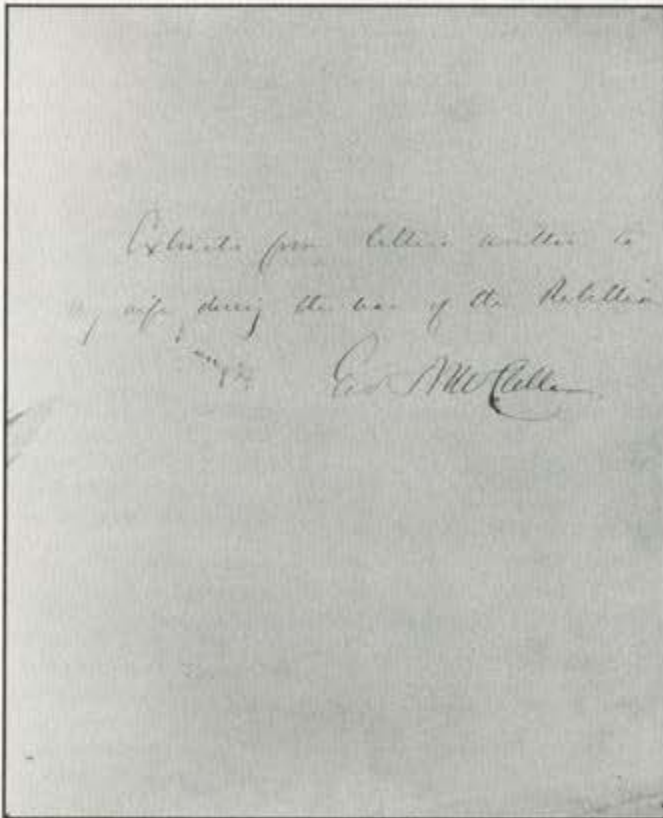 Extracts from letters written to
my wife, during the war of the Rebellion
Geo B McClellan